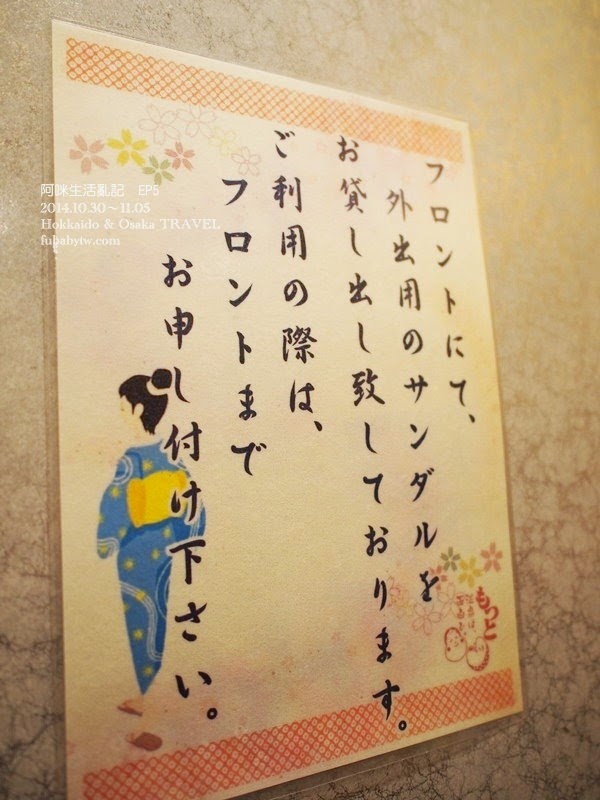 フロントにて、
外出用のサンダルを
お貸し出し致しております。
ご利用の際は、
フロントまで
お申し付け下さい。
もっと
阿咪生活亂記 EP5
2014.10.30～11.05
Hokkaido & Osaka TRAVEL
fubabytw.com